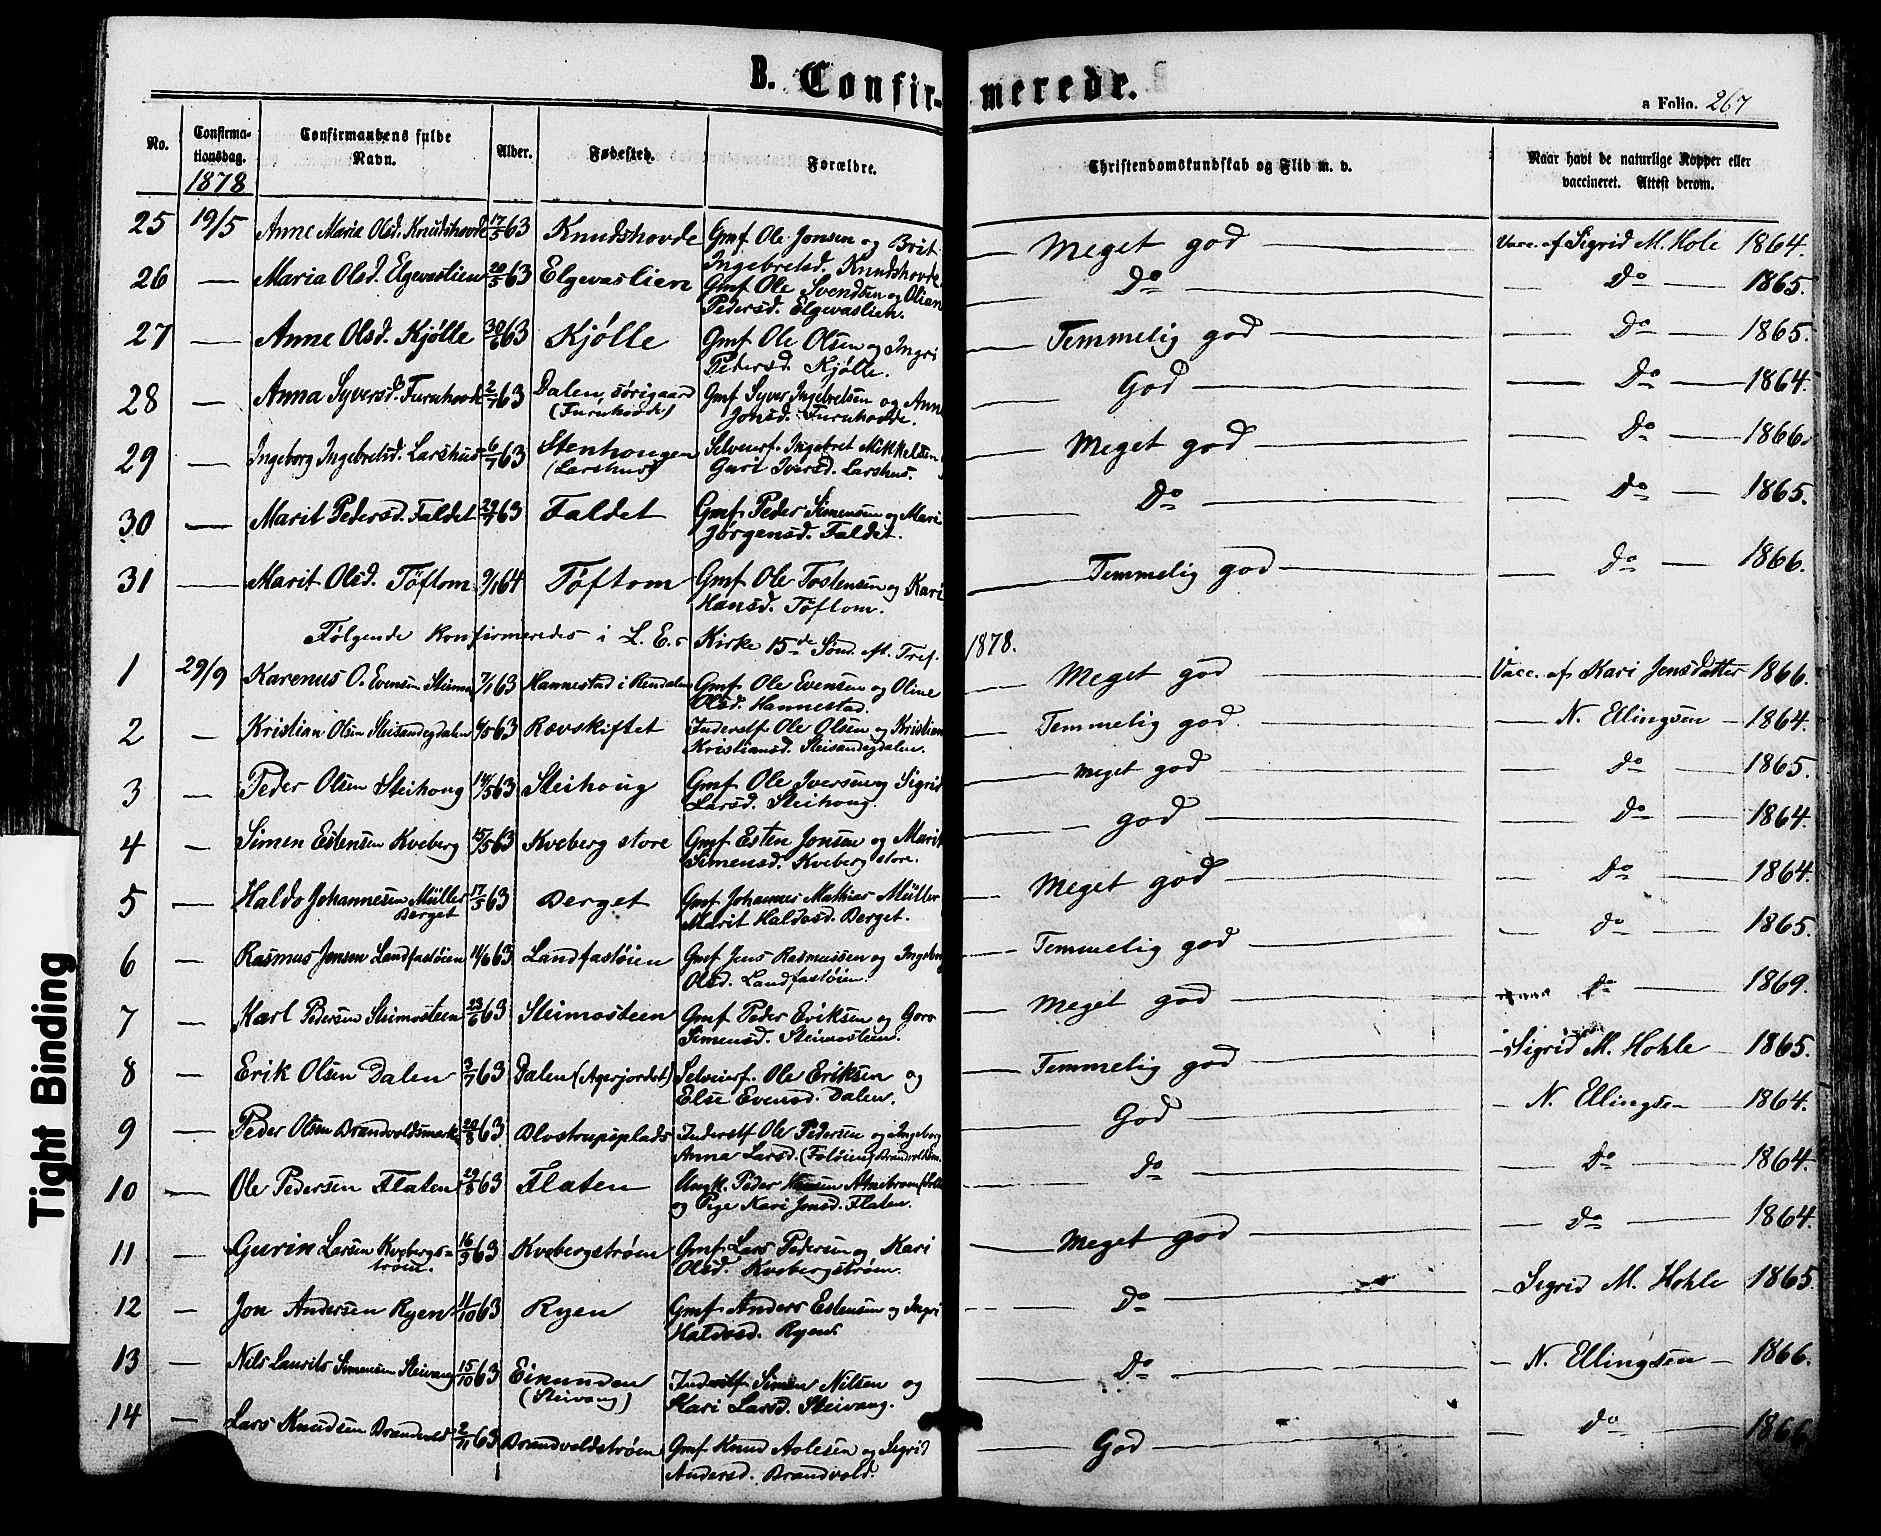 B. Confirmerede.
a Folio. 267
No. Confirmationsdag. Confirmandens fulde Navn. Alder. Fødested. Forældre. Christendomskundskab og Flid m. v. Naar havt de naturlige Kopper eller vaccineret. Attest derom.
1878
25 19/5 Anne Marie Olsd. Knudshovde 17/5 63 Knudshovde Gmf Ole Jonsen og Brit Meget god Vacc. af Sigrid M. Hole 1864.
Ingebretsd. Knudshovde.
26 — Maria Olsd. Elgevaslien 20/5 63 Elgevaslien Gmf Ole Svendsen og Olian Do Do 1865.
Pedersd. Elgevaslien.
27 — Anne Olsd. Kjølle 30/6 63 Kjølle Gmf Ole Olsen og Ingri Temmelig god Do 1865.
Pedersd. Kjølle.
28 — Anna Syversd. Furuhovde 2/7 63 Dalen, sørigaard Gmf Syver Ingebretsen og Anne God Do 1864.
(Furuhovde) Jonsd. Furuhovde.
29 — Ingeborg Ingebretsd. Larshus 6/7 63 Stenhougen Selveierf. Ingebret Mikkelsen Meget god Do 1866.
(Larshus) Guri Iversd. Larshus.
30 — Marit Pedersd. Faldet 29/7 63 Faldet Gmf Peder Simensen og Mari Do Do 1865.
Jørgensd. Faldet.
31 — Marit Olsd. Tøftom 9/1 64 Tøftom Gmf Ole Tostensen og Kari Temmelig god Do 1866.
Hansd. Tøftom.
Følgende konfirmeredes i L. E.s Kirke 15de Sønd. eft. Tref. 1878.
1 29/9 Karenus O. Evensen 7/1 63 Hannestad i Rendalen Gmf Ole Evensen og Oline Meget god Vacc. af Kari Jensdatter 1866.
Olsd. Hannestad.
2 — Kristian Olsen Steisandegdalen 6/5 63 Rovskiftet Inderstf Ole Olsen og Kristian Temmelig god N. Ellingsen 1864.
Kristiansd. Steisandegdalen.
3 — Peder Olsen Steihoug 14/5 63 Steihoug Gmf Ole Iversen og Sigrid Meget god Do 1865.
Larsd. Steihoug.
4 — Simen Estensen Kveberg 15/5 63 Kveberg store Gmf Esten Jonsen og Marit god Do 1864.
Simensd. Kveberg store.
5 — Haldo Johannesen Müller 17/5 63 Berget Gmf Johannes Mathias Müller Meget god Do 1864.
Berget Marit Haldosd. Berget.
6 — Rasmus Jensen Landfastøien 14/6 63 Landfastøien Gmf Jens Rasmussen og Ingeborg Temmelig god Do 1865.
Olsd. Landfastøien.
7 — Karl Pedersen Steimosteen 23/6 63 Steimosteen Gmf Peder Eriksen og Goro Meget god Do 1869.
Simensd. Steimosteen.
8 — Erik Olsen Dalen 3/7 63 Dalen (Agerjordet) Selveierf. Ole Eriksen og Temmelig god Sigrid M. Hohle 1865.
Else Evensd. Dalen.
9 — Peder Olsen Brandvoldsmark 20/8 63 Blostrupsplads Inderstf Ole Pedersen og Ingeborg God N. Ellingsen 1864.
Anna Larsd.
10 — Ole Pedersen Flaten 29/8 63 Flaten Ungk. Peder Do Do 1864.
og Pige Kari Jonsd. Flaten.
11 — Gurin Larsen Kvebergs= 16/9 63 Kvebergstrøen Gmf Lars Pedersen og Kari Meget god Do 1864.
trøen. Olsd. Kvebergstrøen.
12 — Jon Andersen Ryen 11/10 63 Ryen Gmf Anders Estensen og Ingri Do Sigrid M. Hohle 1865
Haldosd. Ryen.
13 — Nils Laurits Simensen Steivang 15/10 63 Einunden Inderstf Simen Nilsen og Do N. Ellingsen 1866.
(Steivang) Kari Larsd. Steivang.
14 — Lars Knudsen Brandvold 2/11 63 Brandvoldstrøen Gmf Knud Aolesen og Sigrid God Do 1866
Andersd. Brandvold.
Tight Binding